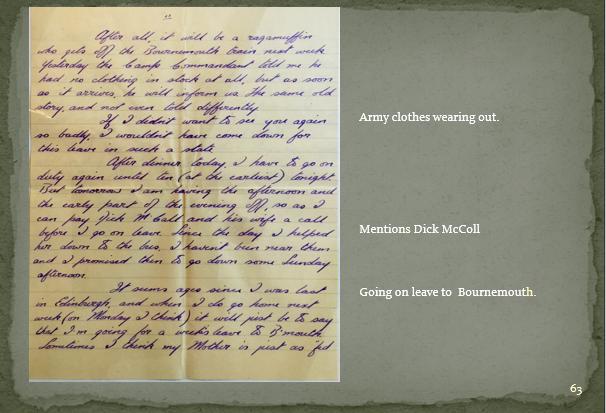 After all, it will be a ragamuffin
who gets off the Bournemouth train next week
Yesterday the Camp Commandant told me he
had no clothing in stock at all, but as soon
as it arrives, he will inform us. The same old
story, and not even told differently
If I didn't want to see you again
so badly, I wouldn't have come down for
this leave in such a state.
After dinner today, I have to go on
duty again until ten (at the earliest) tonight.
But tomorrow I am having the afternoon and
the early part of the evening off, so as I
can pay Dick McCall and his wife a call
before I go on leave. Since the day I helped
her down to the bus, I haven't been near them
and I promised them to go down some Sunday
afternoon.
It seems ages since I was last
in Edinburgh, and when I do go home next
week (on Monday I think) it will just be to say
that I'm going for a week's leave to B'mouth
Sometimes I think my Mother is just as 'fed
Army clothes wearing out.
Mentions Dick McColl
Going on leave to Bournemouth.
63